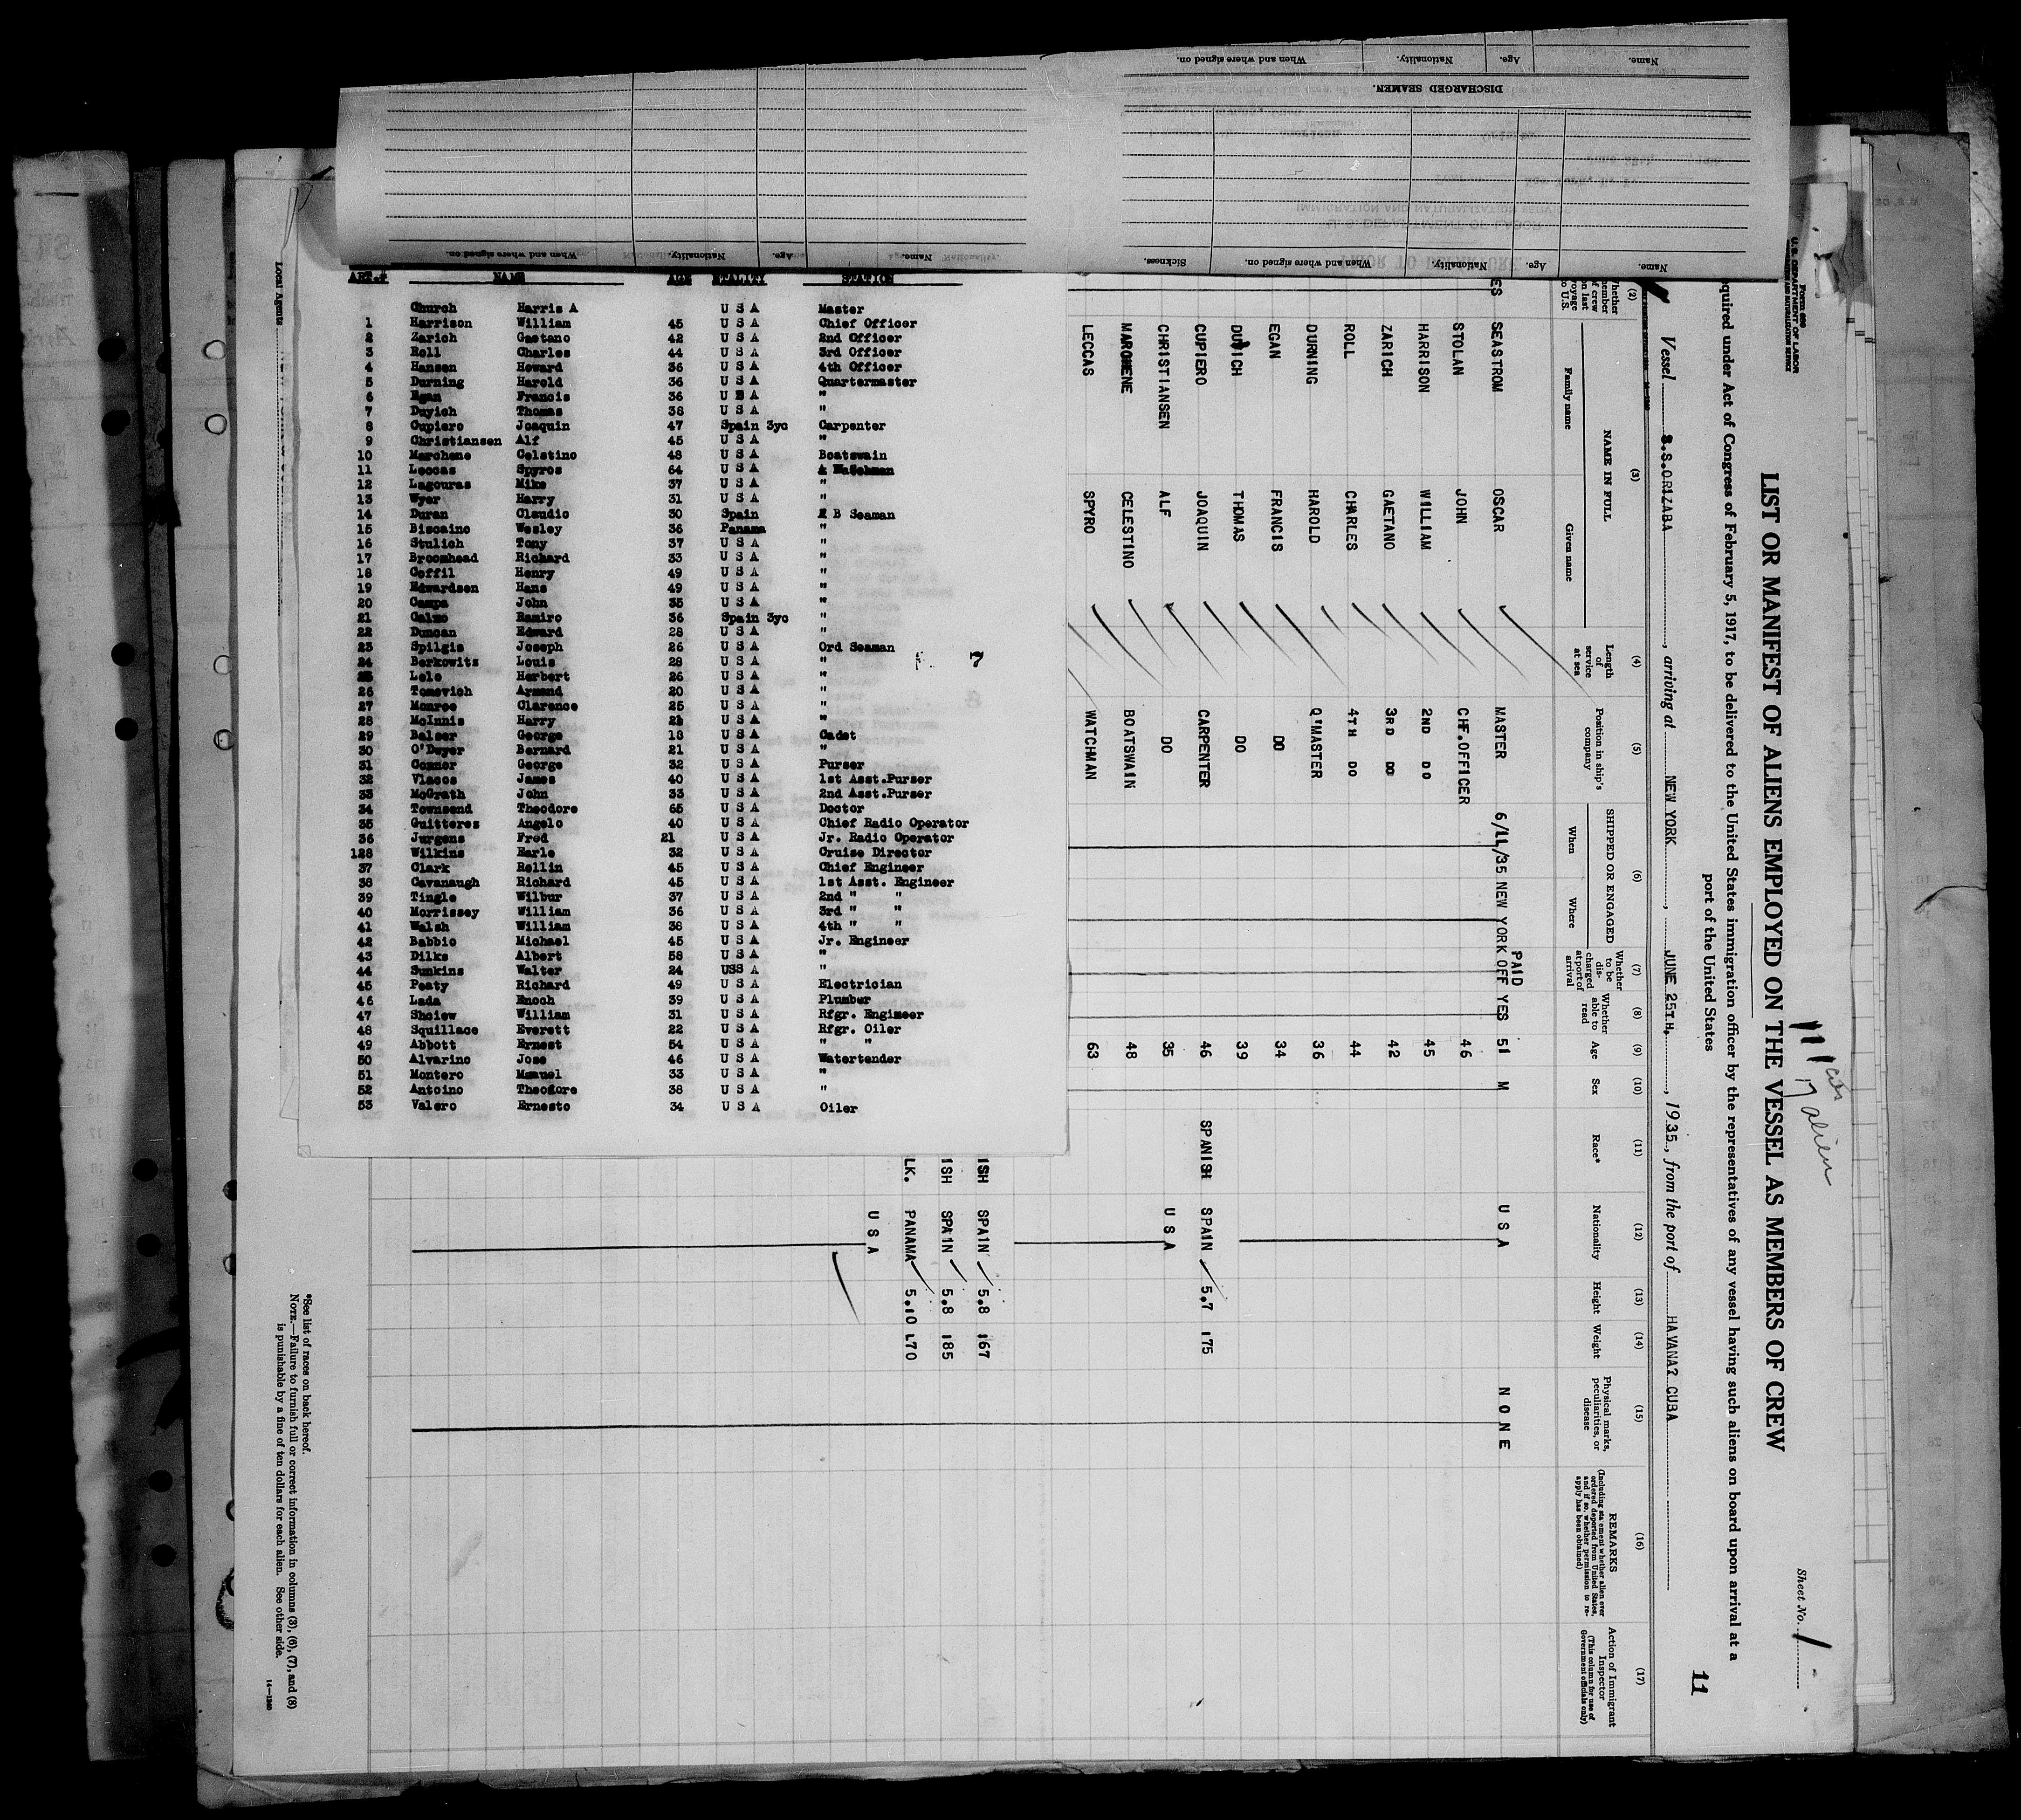 Name. Age. Nationality. When and where signed on.
DISCHARGED SEAMEN.
IMMIGRATION AND NATURALIZATION SERVICE
U. S. DEPARTMENT OF LABOR
Name. Age. Nationality. When and where signed on. Sickness.
Name. Age. Nationality. When and where signed on.
ART.# NAME AGE NTALITY STATION
Church Harris A U S A Master
1 Harrison William 45 U S A Chief Officer
2 Zarich Gaetano 42 U S A 2nd Officer
3 Roll Charles 44 U S A 3rd Officer
4 Hansen Howard 36 U S A 4th Officer
5 Durning Harold 36 U S A Quartermaster
6 Egan Francis 36 U S A "
7 Duyich Thomas 38 U S A "
8 Cupiero Joaquin 47 Spain 3yc Carpenter
9 Christiansen Alf 45 U S A "
10 Marchene Celstino 48 U S A Boatswain
11 Leccas Spyros 64 U S A Watchman
12 Lagouras Mike 37 U S A "
13 Wyer Harry 31 U S A "
14 Duran Claudio 30 Spain A B Seaman
15 Biscaino Wesley 36 Panama "
16 Stulich Tony 37 U S A "
17 Broomhead Richard 33 U S A "
18 Coffil Henry 49 U S A "
19 Edwardsen Hans 49 U S A "
20 Campa John 35 U S A "
21 Calmo Ramiro 36 Spain 3yc "
22 Duncan Edward 28 U S A "
23 Spilgis Joseph 26 U S A Ord Seaman
24 Berkowitz Louis 28 U S A "
25 Lele Herbert 26 U S A "
26 Tomovich Armand 20 U S A "
27 Monroe Clarence 25 U S A "
28 McInnis Harry 21 U S A "
29 Balser George 18 U S A Cadet
30 O'Dwyer Bernard 21 U S A "
31 Connor George 32 U S A Purser
32 Vlacos James 40 U S A 1st Asst.Purser
33 McGrath John 33 U S A 2nd Asst.Purser
34 Townsend Theodore 65 U S A Doctor
35 Guitteres Angelo 40 U S A Chief Radio Operator
36 Jurgens Fred 21 U S A Jr. Radio Operator
128 Wilkins Earle 32 U S A Cruise Director
37 Clark Rollin 45 U S A Chief Engineer
38 Cavanaugh Richard 45 U S A 1st Asst. Engineer
39 Tingle Wilbur 37 U S A 2nd " "
40 Morrissey William 36 U S A 3rd " "
41 Walsh William 38 U S A 4th " "
42 Babbio Michael 45 U S A Jr. Engineer
43 Dilks Albert 58 U S A "
44 Sunkins Walter 24 USS A "
45 Peaty Richard 49 U S A Electrician
46 Lada Enoch 39 U S A Plumber
47 Shciew William 31 U S A Rfgr. Engineer
48 Squillace Everett 22 U S A Rfgr. Oiler
49 Abbott Ernest 54 U S A " "
50 Alvarino Jose 46 U S A Watertender
51 Montero Manuel 33 U S A "
52 Antoino Theodore 38 U S A "
53 Valero Ernesto 34 U S A Oiler
7
Form 680
U.S. DEPARTMENT OF LABOR
Sheet No. 1
7 alien
LIST OR MANIFEST OF ALIENS EMPLOYED ON THE VESSEL AS MEMBERS OF CREW
quired under Act of Congress of February 5, 1917, to be delivered to the United States immigration officer by the representatives of any vessel having such aliens on board upon arrival at a
port of the United States
11
Vessel S.S.ORIZABA, arriving at NEW YORK, JUNE 25TH, 1935, from the port of HAVANA? CUBA
(2) (3) (4) (5) (6) (7) (8) (9) (10) (11) (12) (13) (14) (15) (16) (17)
NAME IN FULL
Family name Given name
Length of service at sea
Position in ship's company
SHIPPED OR ENGAGED
When Where
Whether to be discharged at port of arrival
Whether able to read
Age
Sex
Race*
Nationality
Height
Weight
Physical marks, peculiarities, or disease
REMARKS
(Including statement whether alien ever ordered deported from United States, and if so, whether permission to reapply has been obtained)
Action of Immigrant Inspector
(This column for use of Government officials only)
PAID
ES SEASTROM OSCAR MASTER 6/11/35 NEW YORK OFF YES 51 M U S A N O N E
STOLAN JOHN CHF.OFFICER 46
HARRISON WILLIAM 2ND DO 45
ZARICH GAETANO 3RD DO 42
ROLL CHARLES 4TH DO 44
DURNING HAROLD Q'MASTER 36
EGAN FRANCIS DO 34
DUVICH THOMAS DO 39
CUPIERO JOAQUIN CARPENTER 46 SPANISH SPAIN 5.7 175
CHRISTIANSEN ALF DO 35 U S A
MARCHENE CELESTINO BOATSWAIN 48
LECCAS SPYRO WATCHMAN 63
ISH SPAIN 5.8 167
ISH SPAIN 5.8 185
LK. PANAMA 5.10 170
U S A
*See list of races on back hereof.
NOTE.—Failure to furnish full or correct information in columns (3), (6), (7), and (8)
is punishable by a fine of ten dollars for each alien. See other side.
14—1240
Local Agents